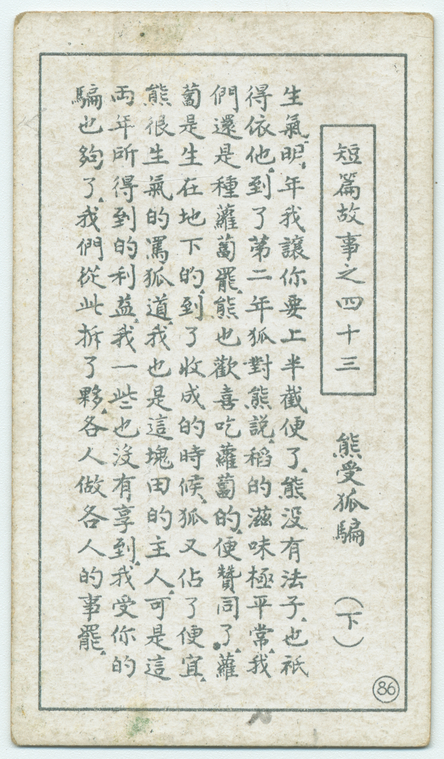 短篇故事之四十三
熊受狐騙 (下)
生氣、明年我讓你要上半截便了、熊没有法子、也衹
得依他、到了第二年狐對熊説、稻的滋味極平常、我
們還是種蘿蔔罷、熊也歡喜吃蘿蔔的、便贊同了。蘿
蔔是生在地下的、到了收成的時候、狐又佔了便宜、
熊很生氣的罵狐道、我也是這塊田的主人、可是這
両年所得到的利益、我一些也没有享到、我受你的
騙也夠了、我們從此拆了夥、各人做各人的事罷、
86